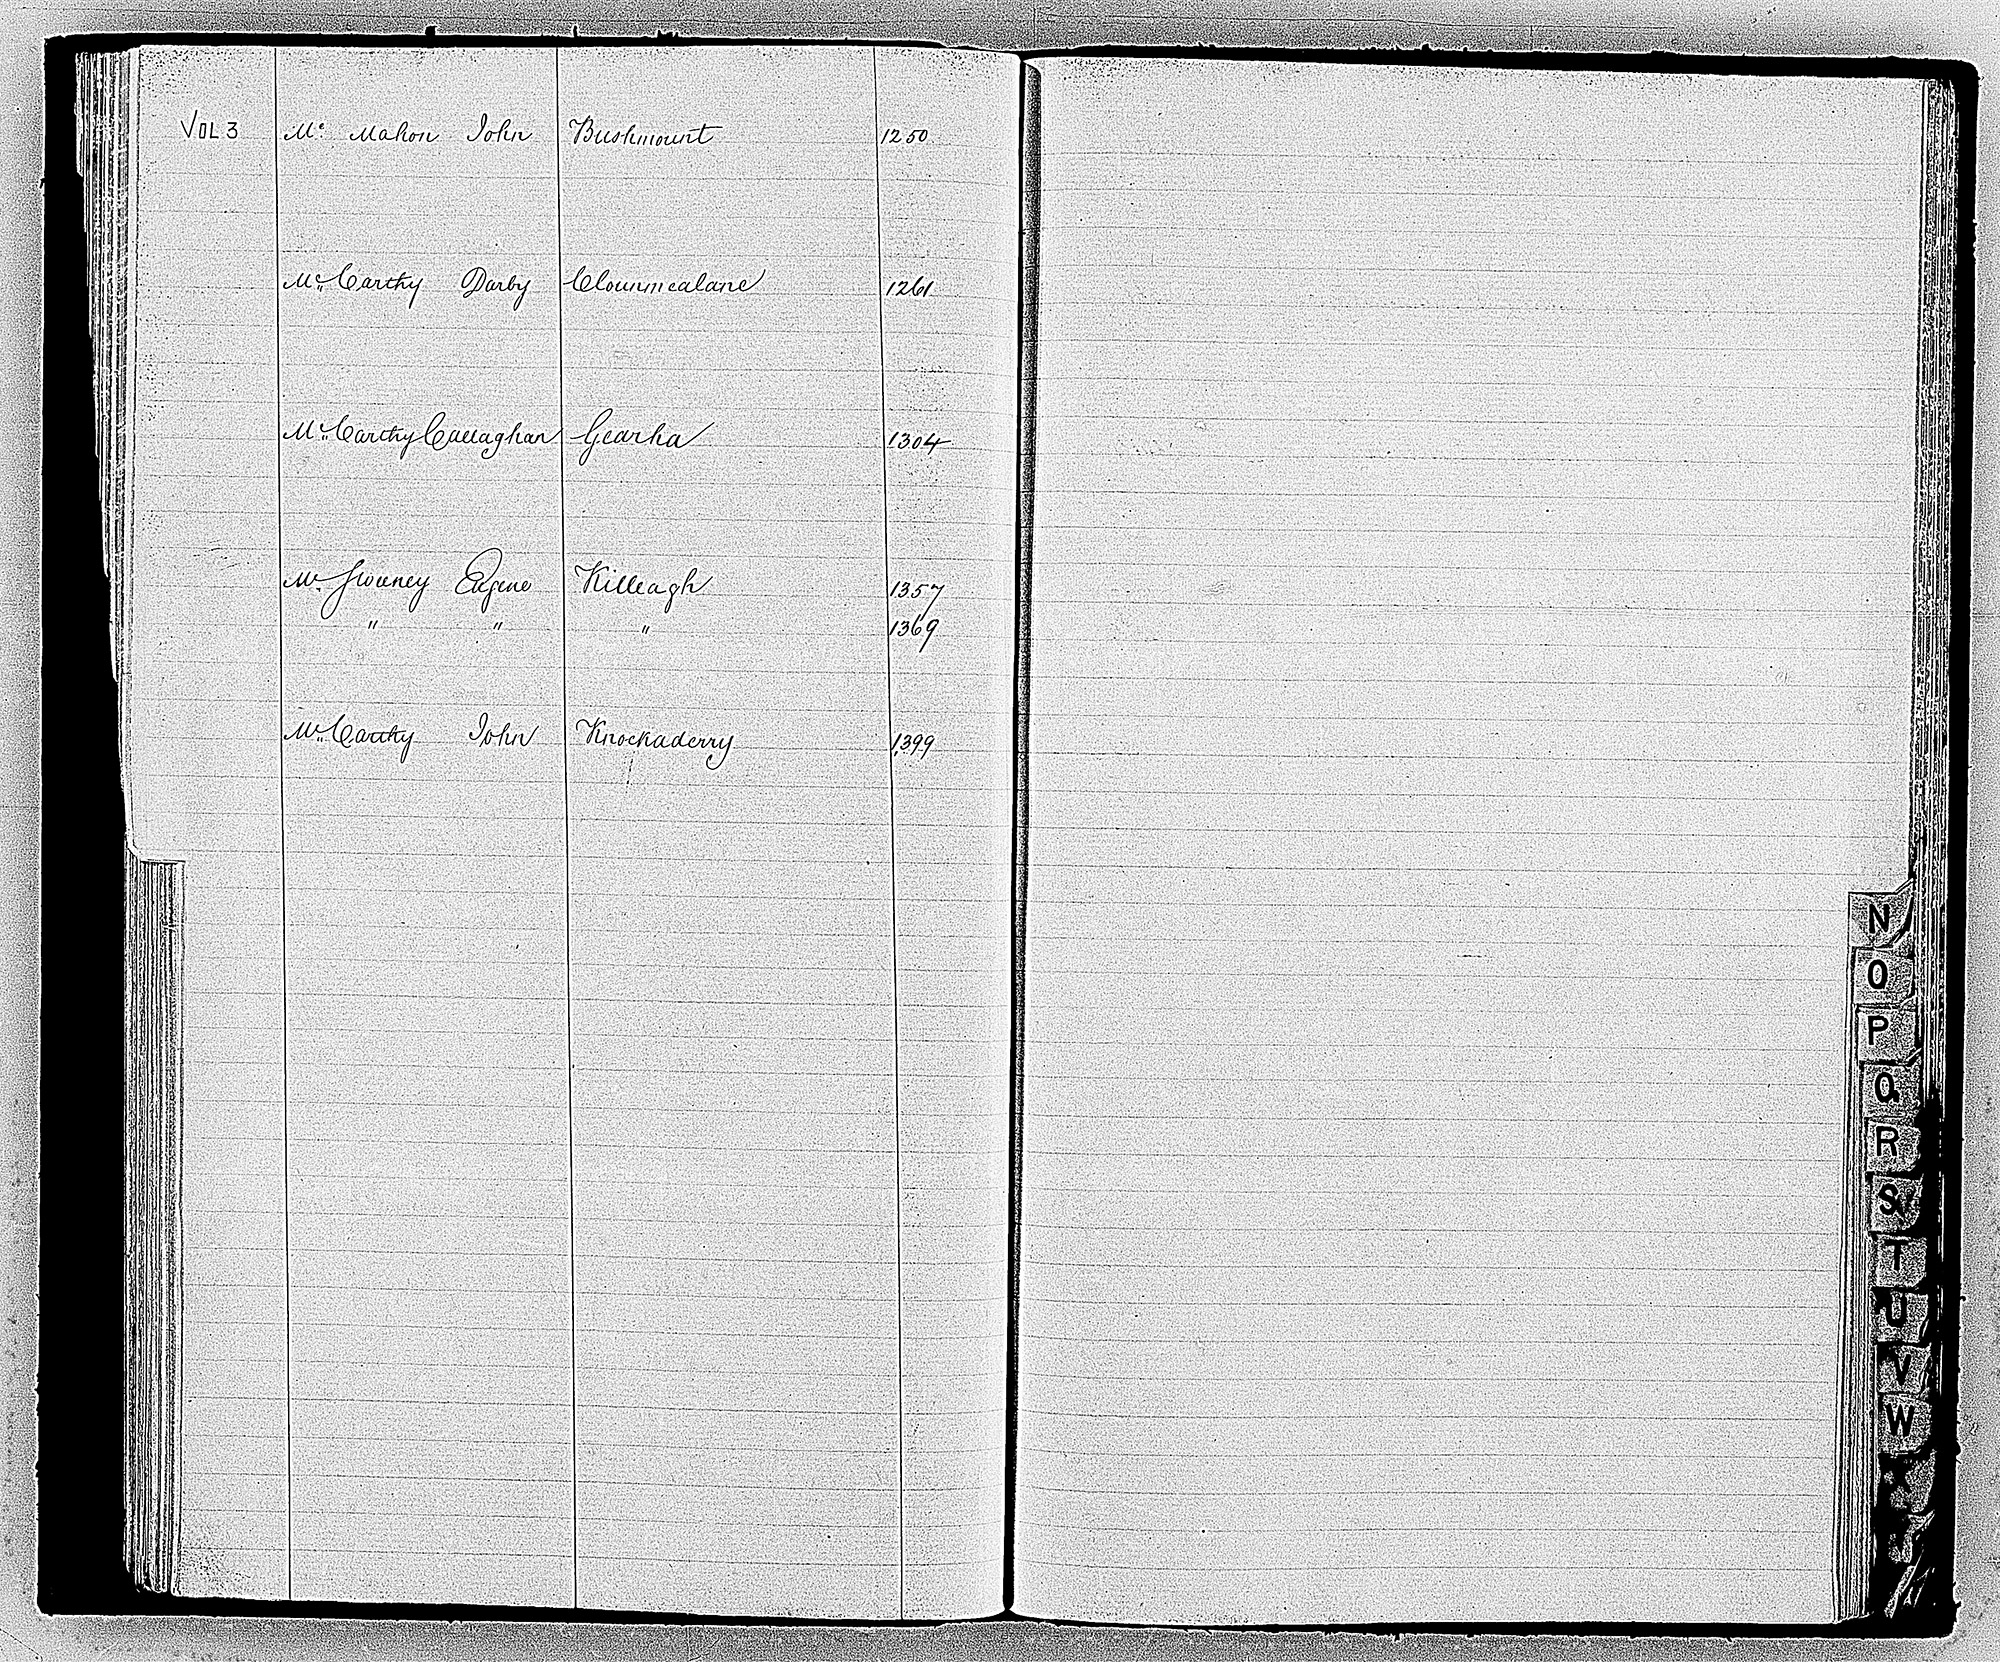 VOL 3 Mc Mahon John Bushmount 1250
Mc Carthy Darby Clounmealane 1261
Mc Carthy Callaghan Gearha 1304
Mc Sweeney Eugene Killeagh 1357
" " " 1369
Mc Carthy John Knockaderry 1399
N
O
P
Q
R
S
T
U
V
W